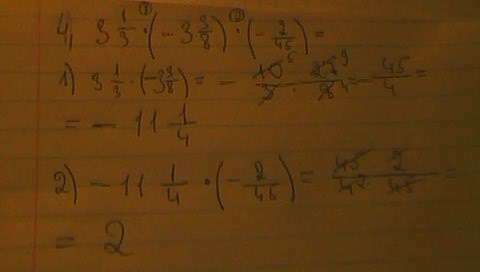 4, 3 1/3 · (- 3 3/8) · (- 2/45) =
1) 3 1/3 · (-3 3/8) = - 10 5/3 · 27 9/8 4 = 45/4 =
= - 11 1/4
2) - 11 1/4 · (- 2/45) = 45 · 2/4 2 · 45 =
= 2